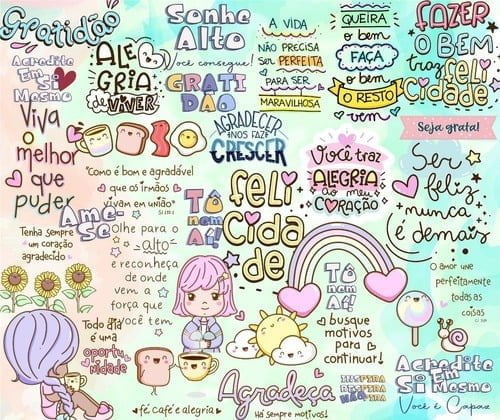 Gratidão
Acredite
Em
Si
Mesmo
Viva
o
melhor
que
puder
Ame-
Se
Tenha sempre
um coração
agradecido
ALE
GRIA
de VIVER
Sonhe
Alto
você consegue!
GRATI
DÃO
A VIDA
NÃO PRECISA
SER PERFEITA
PARA SER
MARAVILHOSA
QUEIRA
o bem
FAÇA
o bem
O RESTO
vem
FAZER
O BEM
traz
feli
Cidade
Seja grata!
AGRADECER
NOS FAZ
CRESCER
"Como é bom e agradável
que os irmãos
vivam em união"
Sl 133:1
Olhe para o
alto
e reconheça
de onde
vem a
força que
você tem
Tô
nem
Aí!
feli
Cida
de
Você traz
ALEGRIA
ao meu
CORAÇÃO
Ser
feliz
nunca
é demais
O amor une
perfeitamente
todas as
coisas
Tô
nem
Aí!
busque
motivos para
continuar!
Todo dia
é uma
oportu
nidade
fé café e alegria
Agradeça
Há sempre motivos!
INSPIRA
RESPIRA
NÃO PIRA
Acredite
Em
Si
Mesmo
Você é Capaz